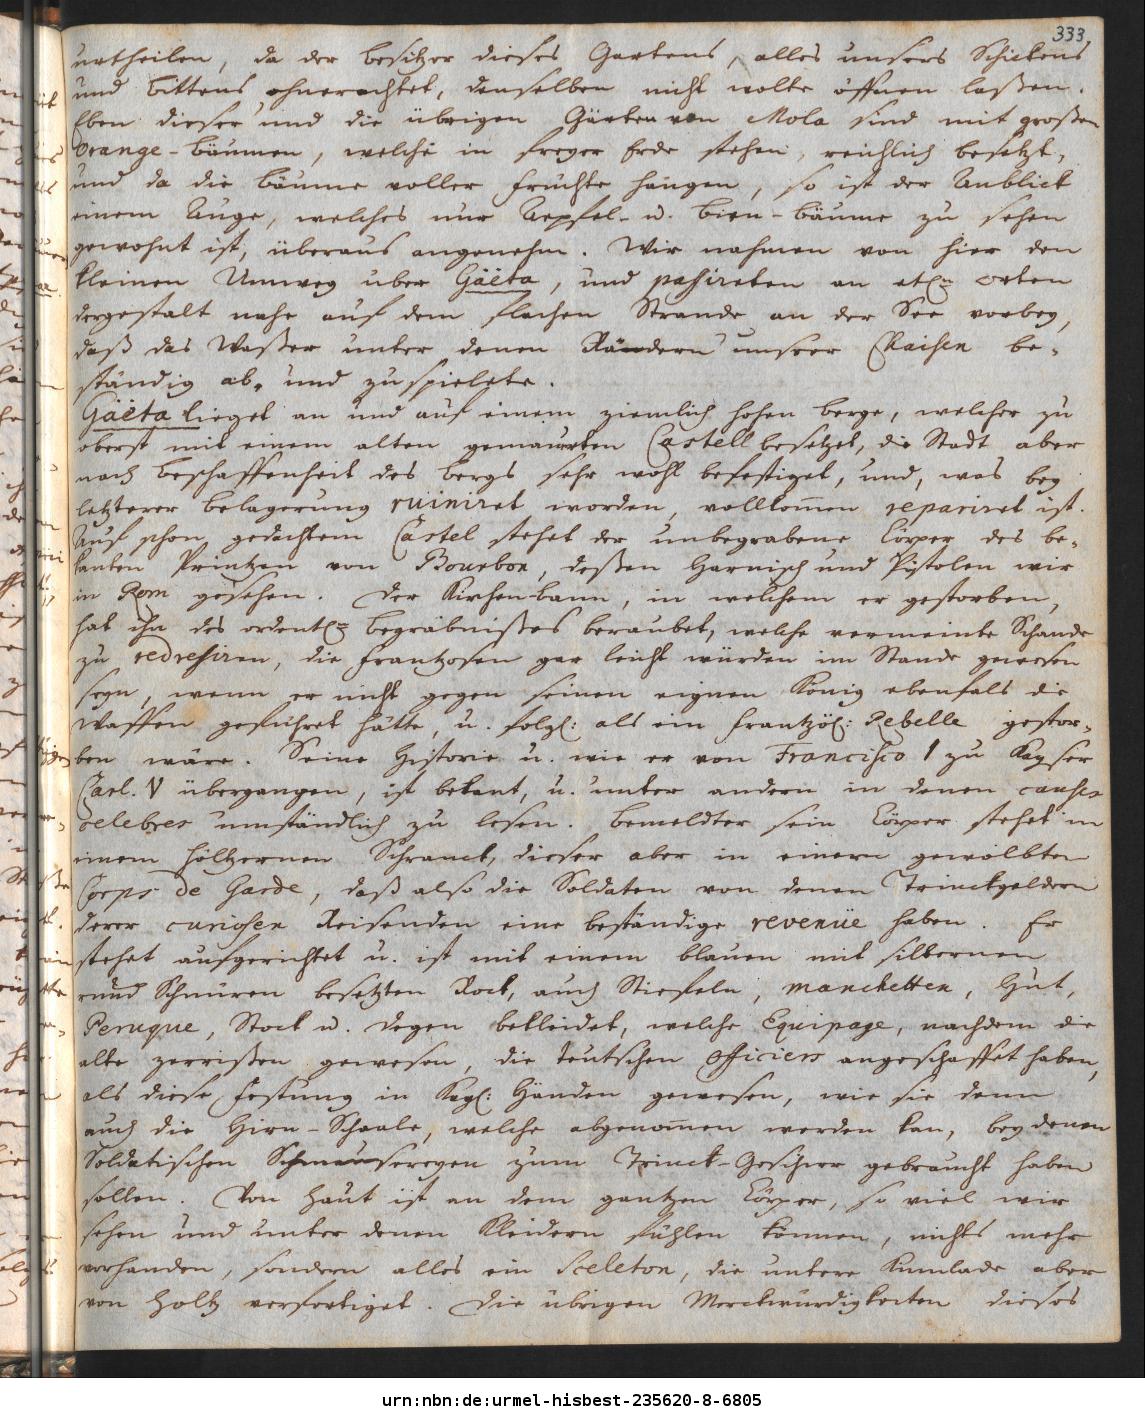 333.
urtheilen, da der besitzer dieses Gartens, alles unsers Schickens
und bittens ohnerachtet, denselben nicht wolte öffnen laßen.
Eben dieser und die übrigen Gärten von Mola sind mit großen
Orange-bäumen, welche in freyer Erde stehen, reichlich besetzt,
und da die bäume voller früchte hangen, so ist der Anblick
einem Auge, welches nur Aepfel- u. birn-bäume zu sehen
gewohnt ist, überaus angenehm. Wir nahmen von hier den
kleinen Umweg uber Gäëta, und paßireten an etl: orten
dergestalt nahe auf dem flachen Strande an der See vorbey,
daß das Waßer unter denen Rändern unsrer Chaisen be-
ständig ab- und zu spielete.
Gäëta lieget an und auf einem ziemlich hohen berge, welcher zu
oberst mit einem alten gemaurten Castell besetzet, die Stadt aber
nach beschaffenheit des bergs sehr wohl befestiget, und, was bey
letzterer belagerung ruiniret worden, vollkom̅en repariret ist.
Auf schon gedachtem Castel stehet der unbegrabene Cörper des be-
kanten Printzen von Bourbon, deßen Harnisch und Pistolen wir
in Rom gesehen. Der Kirchen-bann, in welchem er gestorben,
hat ihn des ordentl: begräbnißes beraubet, welche vermeinte Schande
zu redreßiren, die frantzosen gar leicht würden im Stande gewesen
seyn, wenn er nicht gegen seinen eignen König ebenfals die
Waffen geführet hätte, u. folgl: als ein frantzös: Rebelle gestor-
ben wäre. Seine Historie u. wie er von Francisco I zu Kayser
Carl. V übergangen, ist bekant, u. unter andern in denen causes
celebres umständlich zu lesen. bemeldter sein Cörper stehet in
einem höltzernen Schranck, dieser aber in einem gewölbten
Corps de Garde, daß also die Soldaten von denen Trinckgeldern
derer curiosen Reisenden eine beständige revenüe haben. Er
stehet aufgerichtet u. ist mit einem blauen mit silbernen
rund Schnüren besetzten Rock, auch Stiefeln, manchetten, Hut,
Peruque, Stock u. Degen bekleidet, welche Equipage, nachdem die
alte zerrißen gewesen, die teutschen Officiers angeschaffet haben,
als diese Festung in Kayl: Händen gewesen, wie sie denn
auch die Hirn-Schaale, welche abgenom̅en werden kan, bey denen
Soldatischen Schmausereyen zum Trinck-Geschirr gebraucht haben
sollen. Von Haut ist an dem gantzen Cörper, so viel wir
sehen und unter denen Kleidern fühlen können, nichts mehr
vorhanden, sondern alles ein Sceleton, die untere Kinnlade aber
von Holtz verfertiget. Die übrigen Merckwürdigkeiten dieses
urn:nbn:de:urmel-hisbest-235620-8-6805